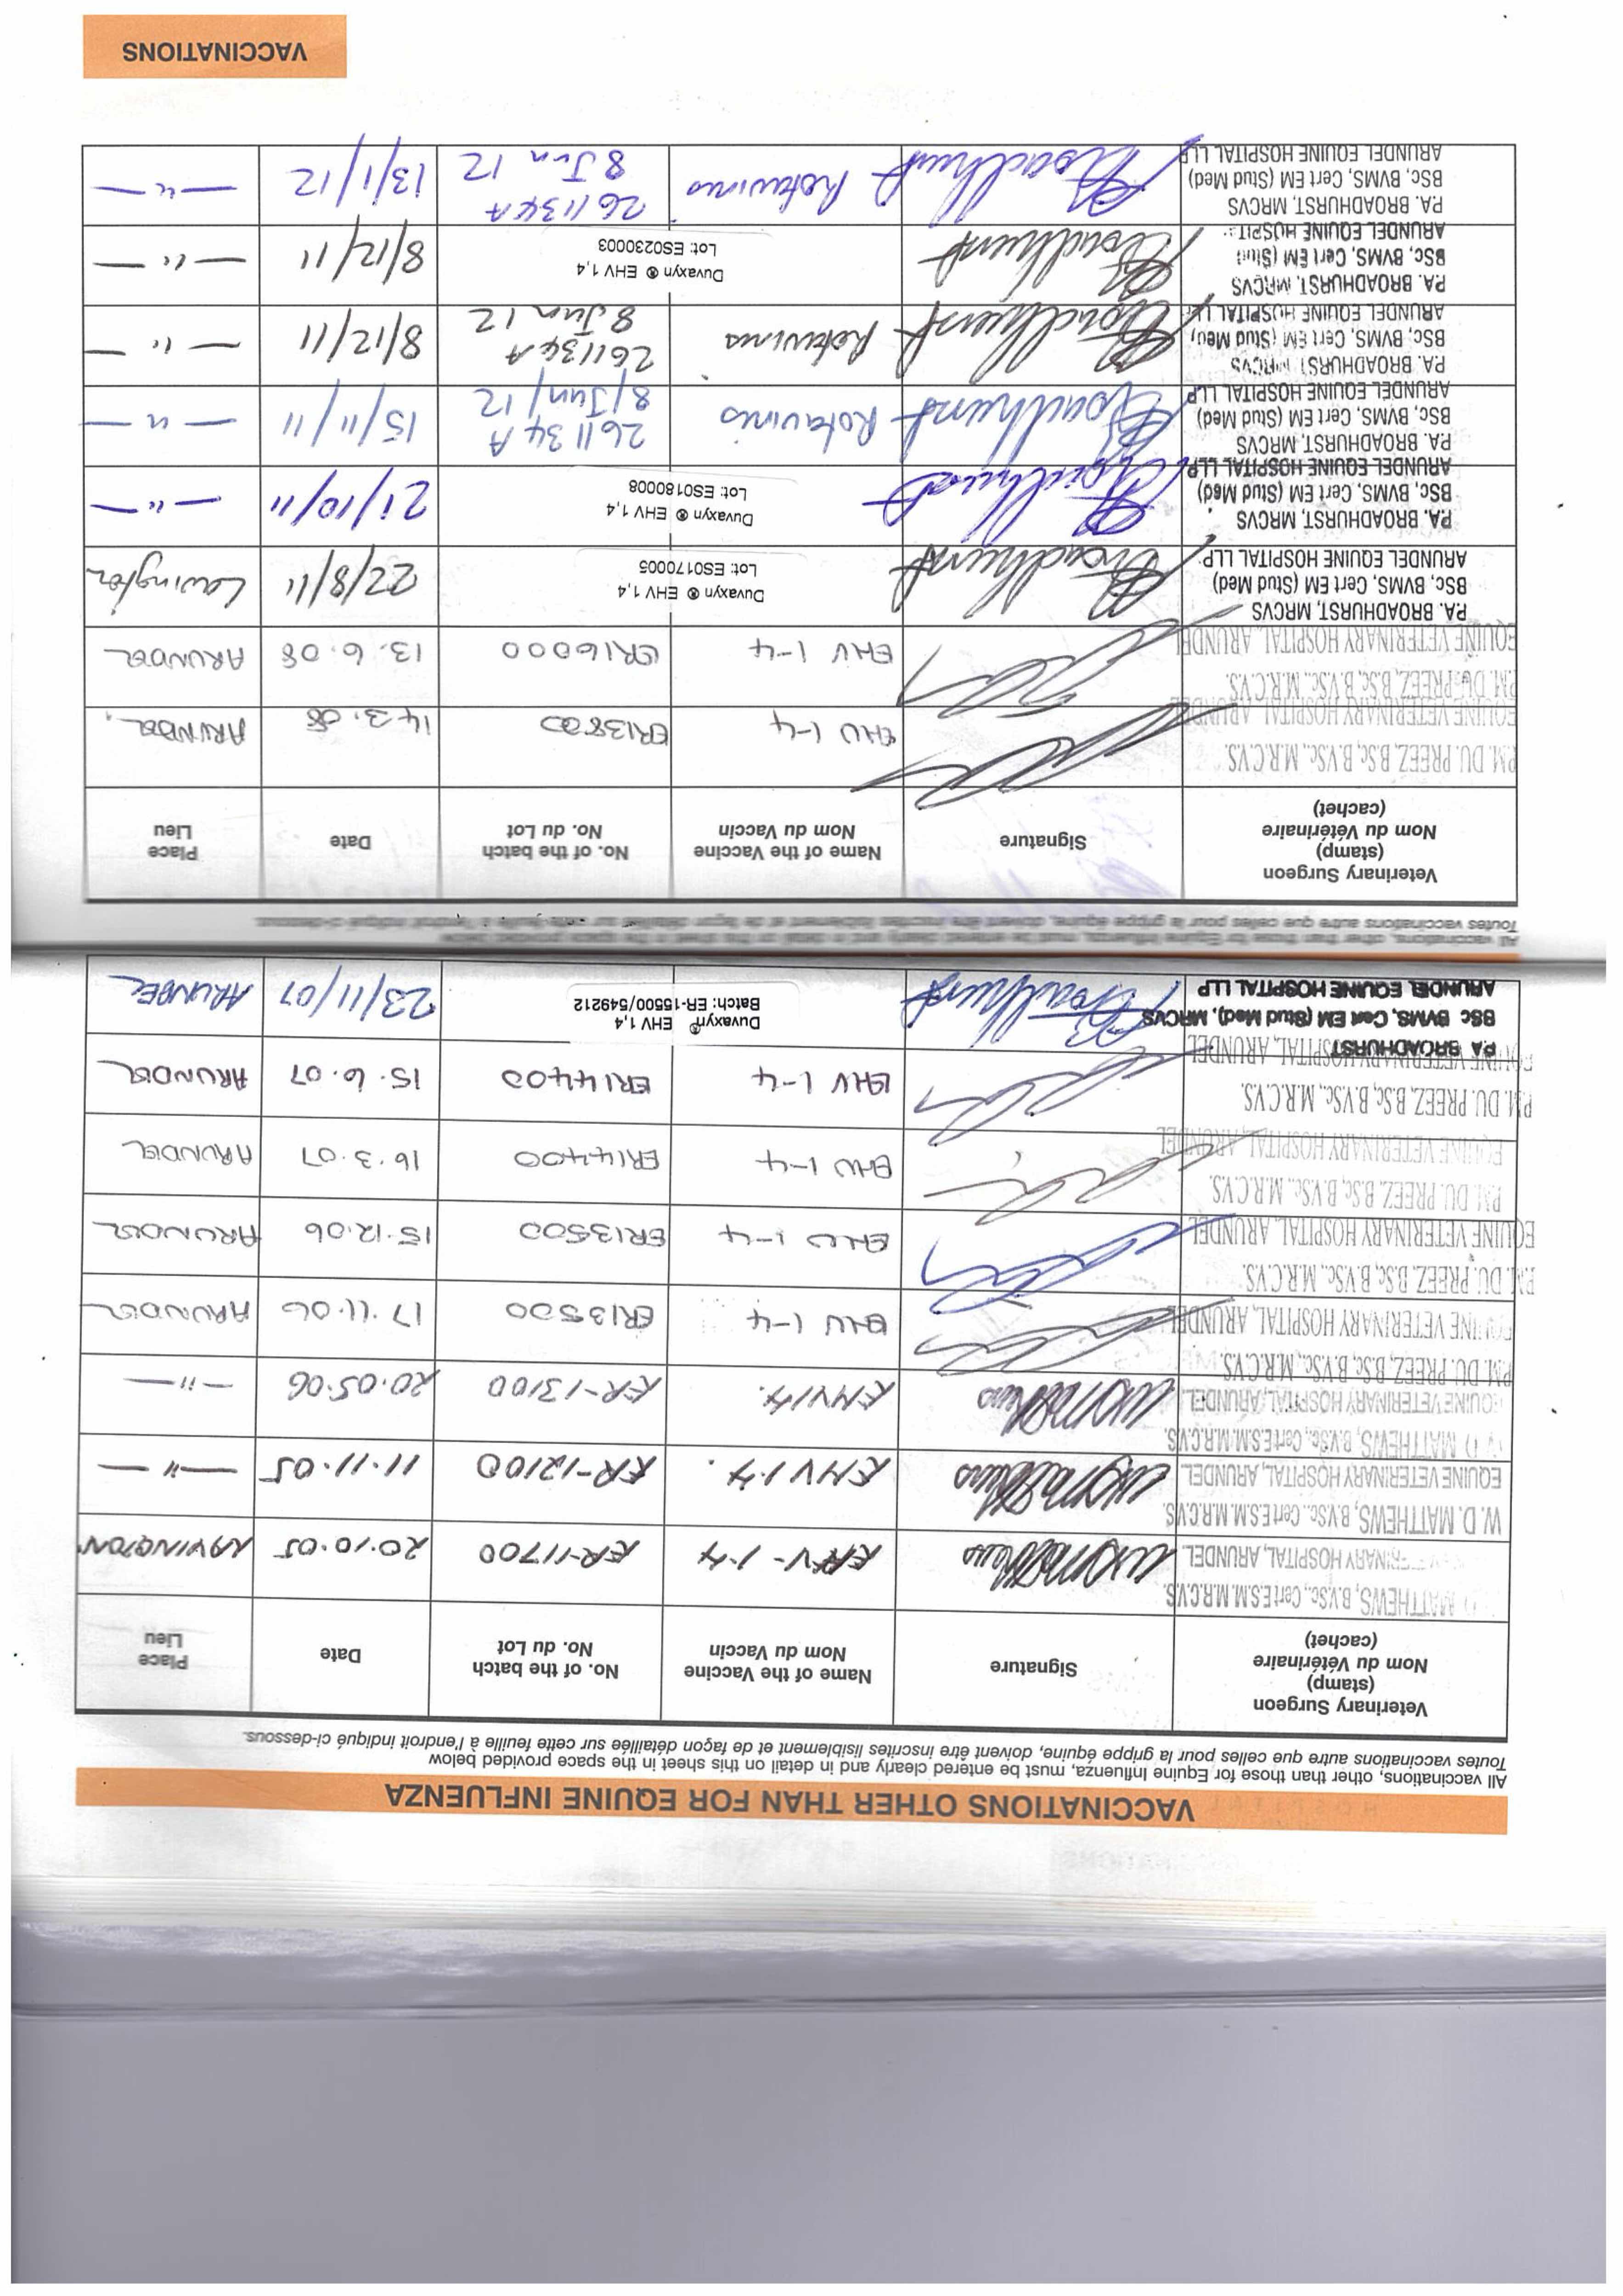 VACCINATIONS OTHER THAN FOR EQUINE INFLUENZA
All vaccinations, other than those for Equine Influenza, must be entered clearly and in detail on this sheet in the space provided below
Toutes vaccinations autre que celles pour la grippe équine, doivent être inscrites lisiblement et de façon détaillée sur cette feuille à l'endroit indiqué ci-dessous.
Place
Lieu
Date
No. of the batch
No. du Lot
Name of the Vaccine
Nom du Vaccin
Signature
Veterinary Surgeon
(stamp)
Nom du Vétérinaire
(cachet)
LAVINGTON 20.10.05 ER-11700 EHV-1.4
MATTHEWS, B.V.Sc., Cert.E.S.M. M.R.C.V.S.
HOSPITAL, ARUNDEL
—"— 11.11.05 ER-12100 EHV 1.4.
W. D. MATTHEWS, B.V.Sc., Cert.E.S.M. M.R.C.V.S.
EQUINE VETERINARY HOSPITAL, ARUNDEL
—"— 20.05.06 ER-13100 EHV 1.4.
MATTHEWS, B.V.Sc., Cert.E.S.M. M.R.C.V.S.
EQUINE VETERINARY HOSPITAL, ARUNDEL
ARUNDEL 17.11.06 ER13500 EHV 1-4
P.M. DU. PREEZ, B.Sc, B.V.Sc., M.R.C.V.S.
EQUINE VETERINARY HOSPITAL, ARUNDEL
ARUNDEL 15.12.06 ER13500 EHV 1-4
P.M. DU. PREEZ, B.Sc, B.V.Sc., M.R.C.V.S.
EQUINE VETERINARY HOSPITAL, ARUNDEL
ARUNDEL 16.3.07 ER14400 EHV 1-4
P.M. DU. PREEZ, B.Sc, B.V.Sc., M.R.C.V.S.
EQUINE VETERINARY HOSPITAL, ARUNDEL
ARUNDEL 15.6.07 ER14400 EHV 1-4
P.M. DU. PREEZ, B.Sc, B.V.Sc., M.R.C.V.S.
EQUINE VETERINARY HOSPITAL, ARUNDEL
ARUNDEL 23/11/07
Duvaxyn® EHV 1,4
Batch: ER-15500/549212
Broadhurst
P.A BROADHURST
BSc BVMS, Cert EM (Stud Med), MRCVS
ARUNDEL EQUINE HOSPITAL LLP
All vaccinations, other than those for Equine Influenza, must be entered clearly and in detail on this sheet in the space provided below
Toutes vaccinations autre que celles pour la grippe équine, doivent être inscrites lisiblement et de façon détaillée sur cette feuille à l'endroit indiqué ci-dessous.
Place
Lieu
Date
No. of the batch
No. du Lot
Name of the Vaccine
Nom du Vaccin
Signature
Veterinary Surgeon
(stamp)
Nom du Vétérinaire
(cachet)
ARUNDEL 14.3.08 ER13800 EHV 1-4
P.M. DU. PREEZ, B.Sc, B.V.Sc., M.R.C.V.S.
EQUINE VETERINARY HOSPITAL, ARUNDEL
ARUNDEL 13.6.08 ER16000 EHV 1-4
P.M. DU. PREEZ, B.Sc, B.V.Sc., M.R.C.V.S.
EQUINE VETERINARY HOSPITAL, ARUNDEL
Lavington 22/8/11
Duvaxyn ® EHV 1,4
Lot: ES0170005
Broadhurst
P.A. BROADHURST, MRCVS
BSc, BVMS, Cert EM (Stud Med)
ARUNDEL EQUINE HOSPITAL LLP
—"— 21/10/11
Duvaxyn ® EHV 1,4
Lot: ES0180008
Broadhurst
P.A. BROADHURST, MRCVS
BSc, BVMS, Cert EM (Stud Med)
ARUNDEL EQUINE HOSPITAL LLP
—"— 15/11/11 261134A Rotavirus Broadhurst
8/Jun/12
P.A. BROADHURST, MRCVS
BSc, BVMS, Cert EM (Stud Med)
ARUNDEL EQUINE HOSPITAL LLP
—"— 8/12/11 261134A Rotavirus Broadhurst
8 Jun 12
P.A. BROADHURST MRCVS
BSc, BVMS, Cert EM (Stud Med)
ARUNDEL EQUINE HOSPITAL
—"— 8/12/11
Duvaxyn ® EHV 1,4
Lot: ES0230003
Broadhurst
P.A. BROADHURST, MRCVS
BSc, BVMS, Cert EM (Stud
ARUNDEL EQUINE HOSPIT
—"— 13/1/12 261134A Rotavirus Broadhurst
8 Jun 12
P.A. BROADHURST, MRCVS
BSc, BVMS, Cert EM (Stud Med)
ARUNDEL EQUINE HOSPITAL LLP
VACCINATIONS